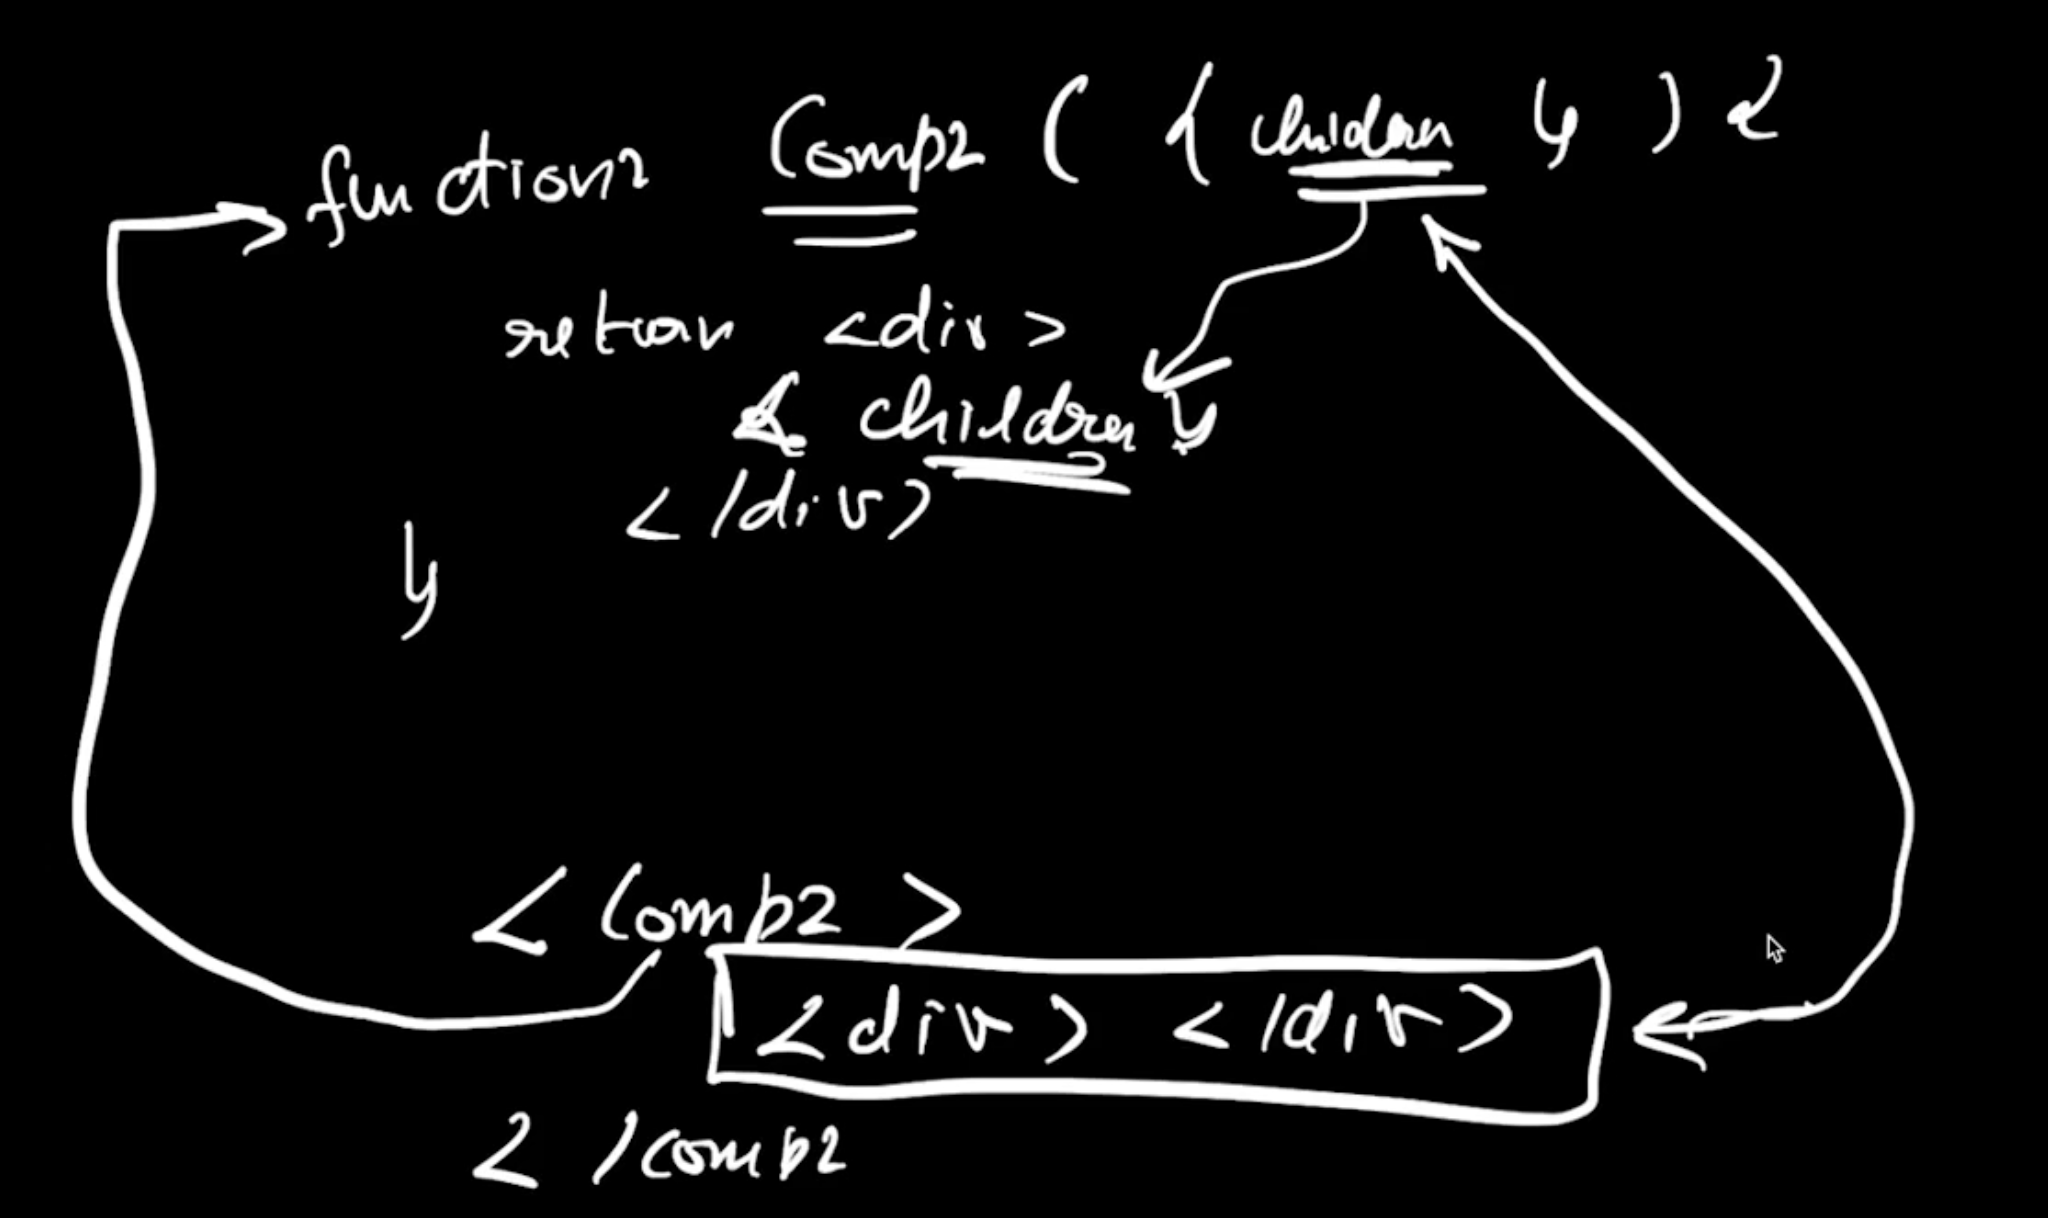 function Comp2 ( { children } ) {
return <div>
{ children }
</div>
}
<Comp2 >
<div> </div>
< /comp2